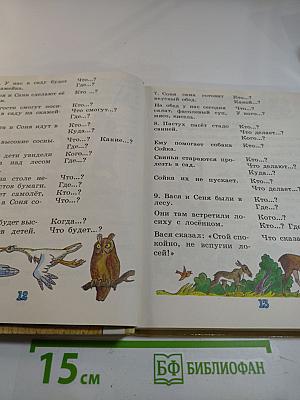 У нас в саду будет Что...?
скамейка. Где...?
и Сеня сделают её Кто...?
Гости смогут поси- Кто...?
в саду на скамей- Что смогут...?
Где...?
и Сеня идут в Кто...?
Куда...?
высокие сосны. Что...? Какие...?
Где...?
дети увидели Кто...?
над лесом Кого...?
Где...?
На столе не- Что...?
сток бумаги. Где...?
ет самолёт, Кто...?
Сеня со- Что...?
будет выс- Когда...?
детей. Что будет...?
12
7. Соня мама готовит Кто...?
вкусный обед. Какой...?
На обед у нас сегодня Что...?
салат, фасолевый суп, У кого...?
мясо, кисель.
8. Пастух пасёт стадо Кто...?
свиней. Что делает...?
Кого...?
Ему помогает собака Кто...?
Сойка. Что делает...?
Свиньи стараются про- Кто...?
лезть в сад. Что делают...?
Куда...?
Сойка их не пускает. Кто...?
Что делает...?
9. Вася и Сеня были в Кто...?
лесу. Где...?
Они там встретили ло- Кого...?
сиху с лосёнком. Кто...? Где...?
Вася сказал: «Стой спо- Что сказал...?
койно, не вспугни ло-
сей!»
13
15 см
БФ БИБЛИОФАН